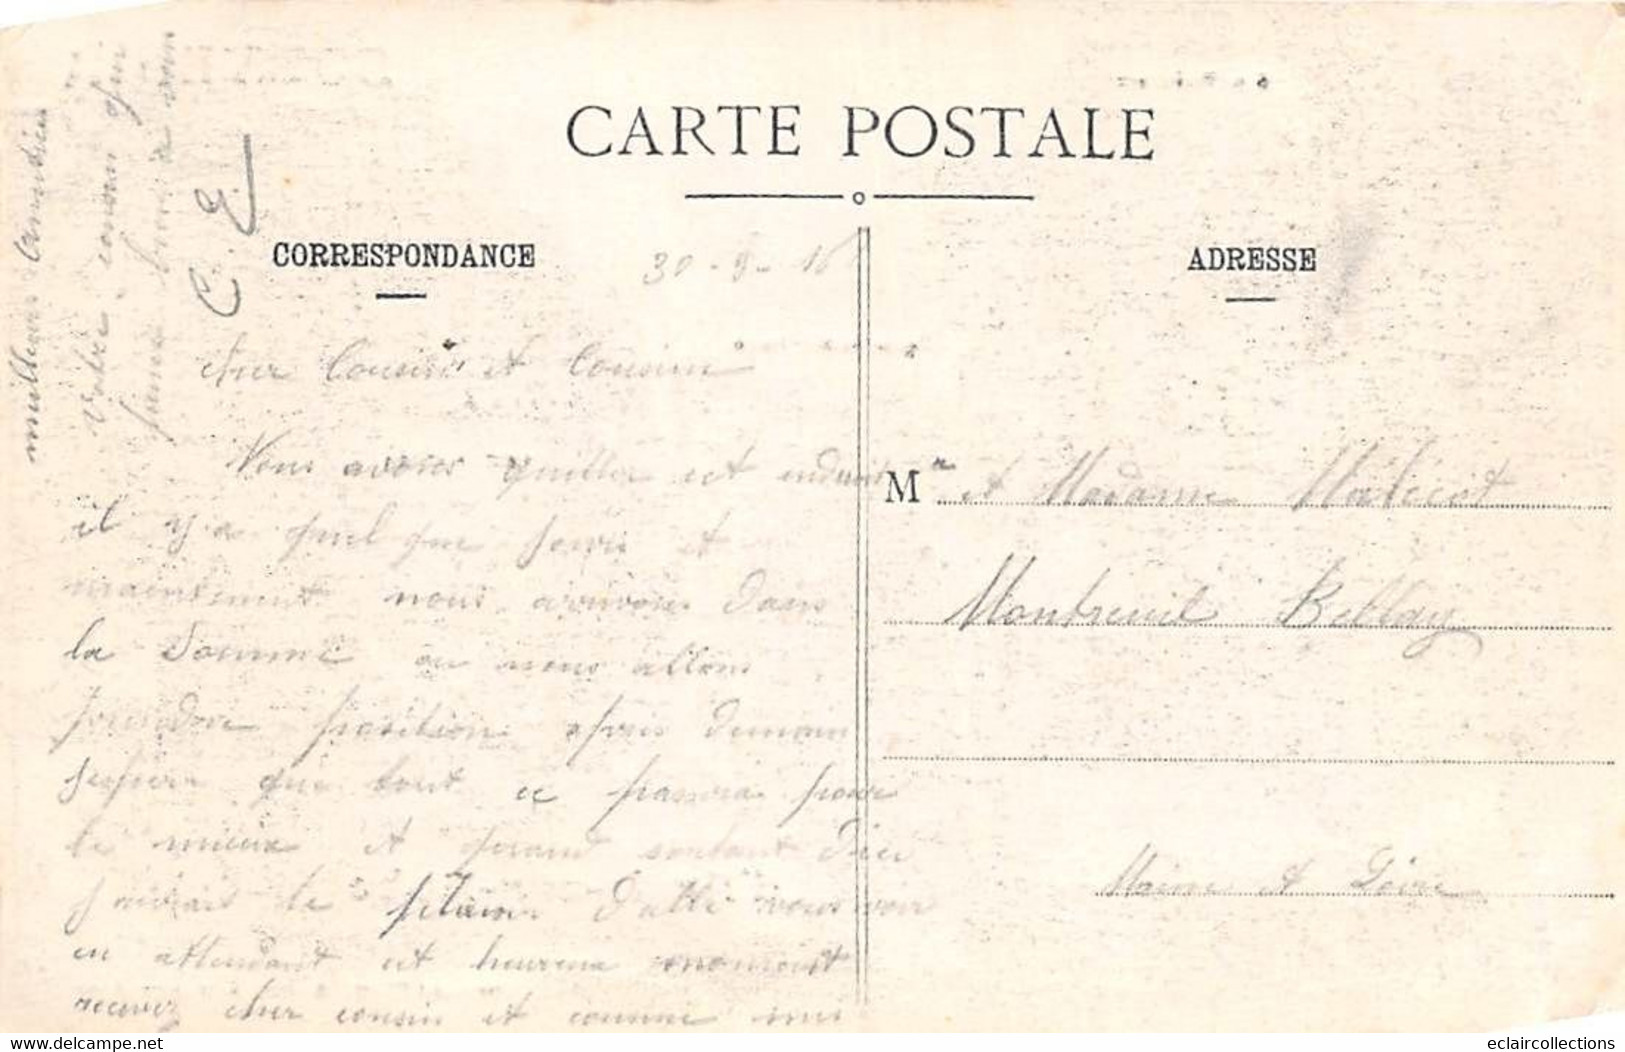 CARTE POSTALE
CORRESPONDANCE
ADRESSE
30 - 9 - 16
C. E
cher Cousin et Cousine
Nous avons quitter cet endroit
il y a quel que jours et
maintenent nous arrivons dans
la Somme ou nous allons
prendre position apris demain
jespere que tout ce passera pour
le mieux et quand sortant Dieu
jaurais le plaisir d'alle vous voir
en attendant cet heureux moment
recevez cher cousin et cousine mes
meilleur amitiés
Votre cousin qui
pense bien a vous
Mr et Madame Malécot
Montreuil Bellay
Maine et Loire
www.delcampe.net
eclaircollections